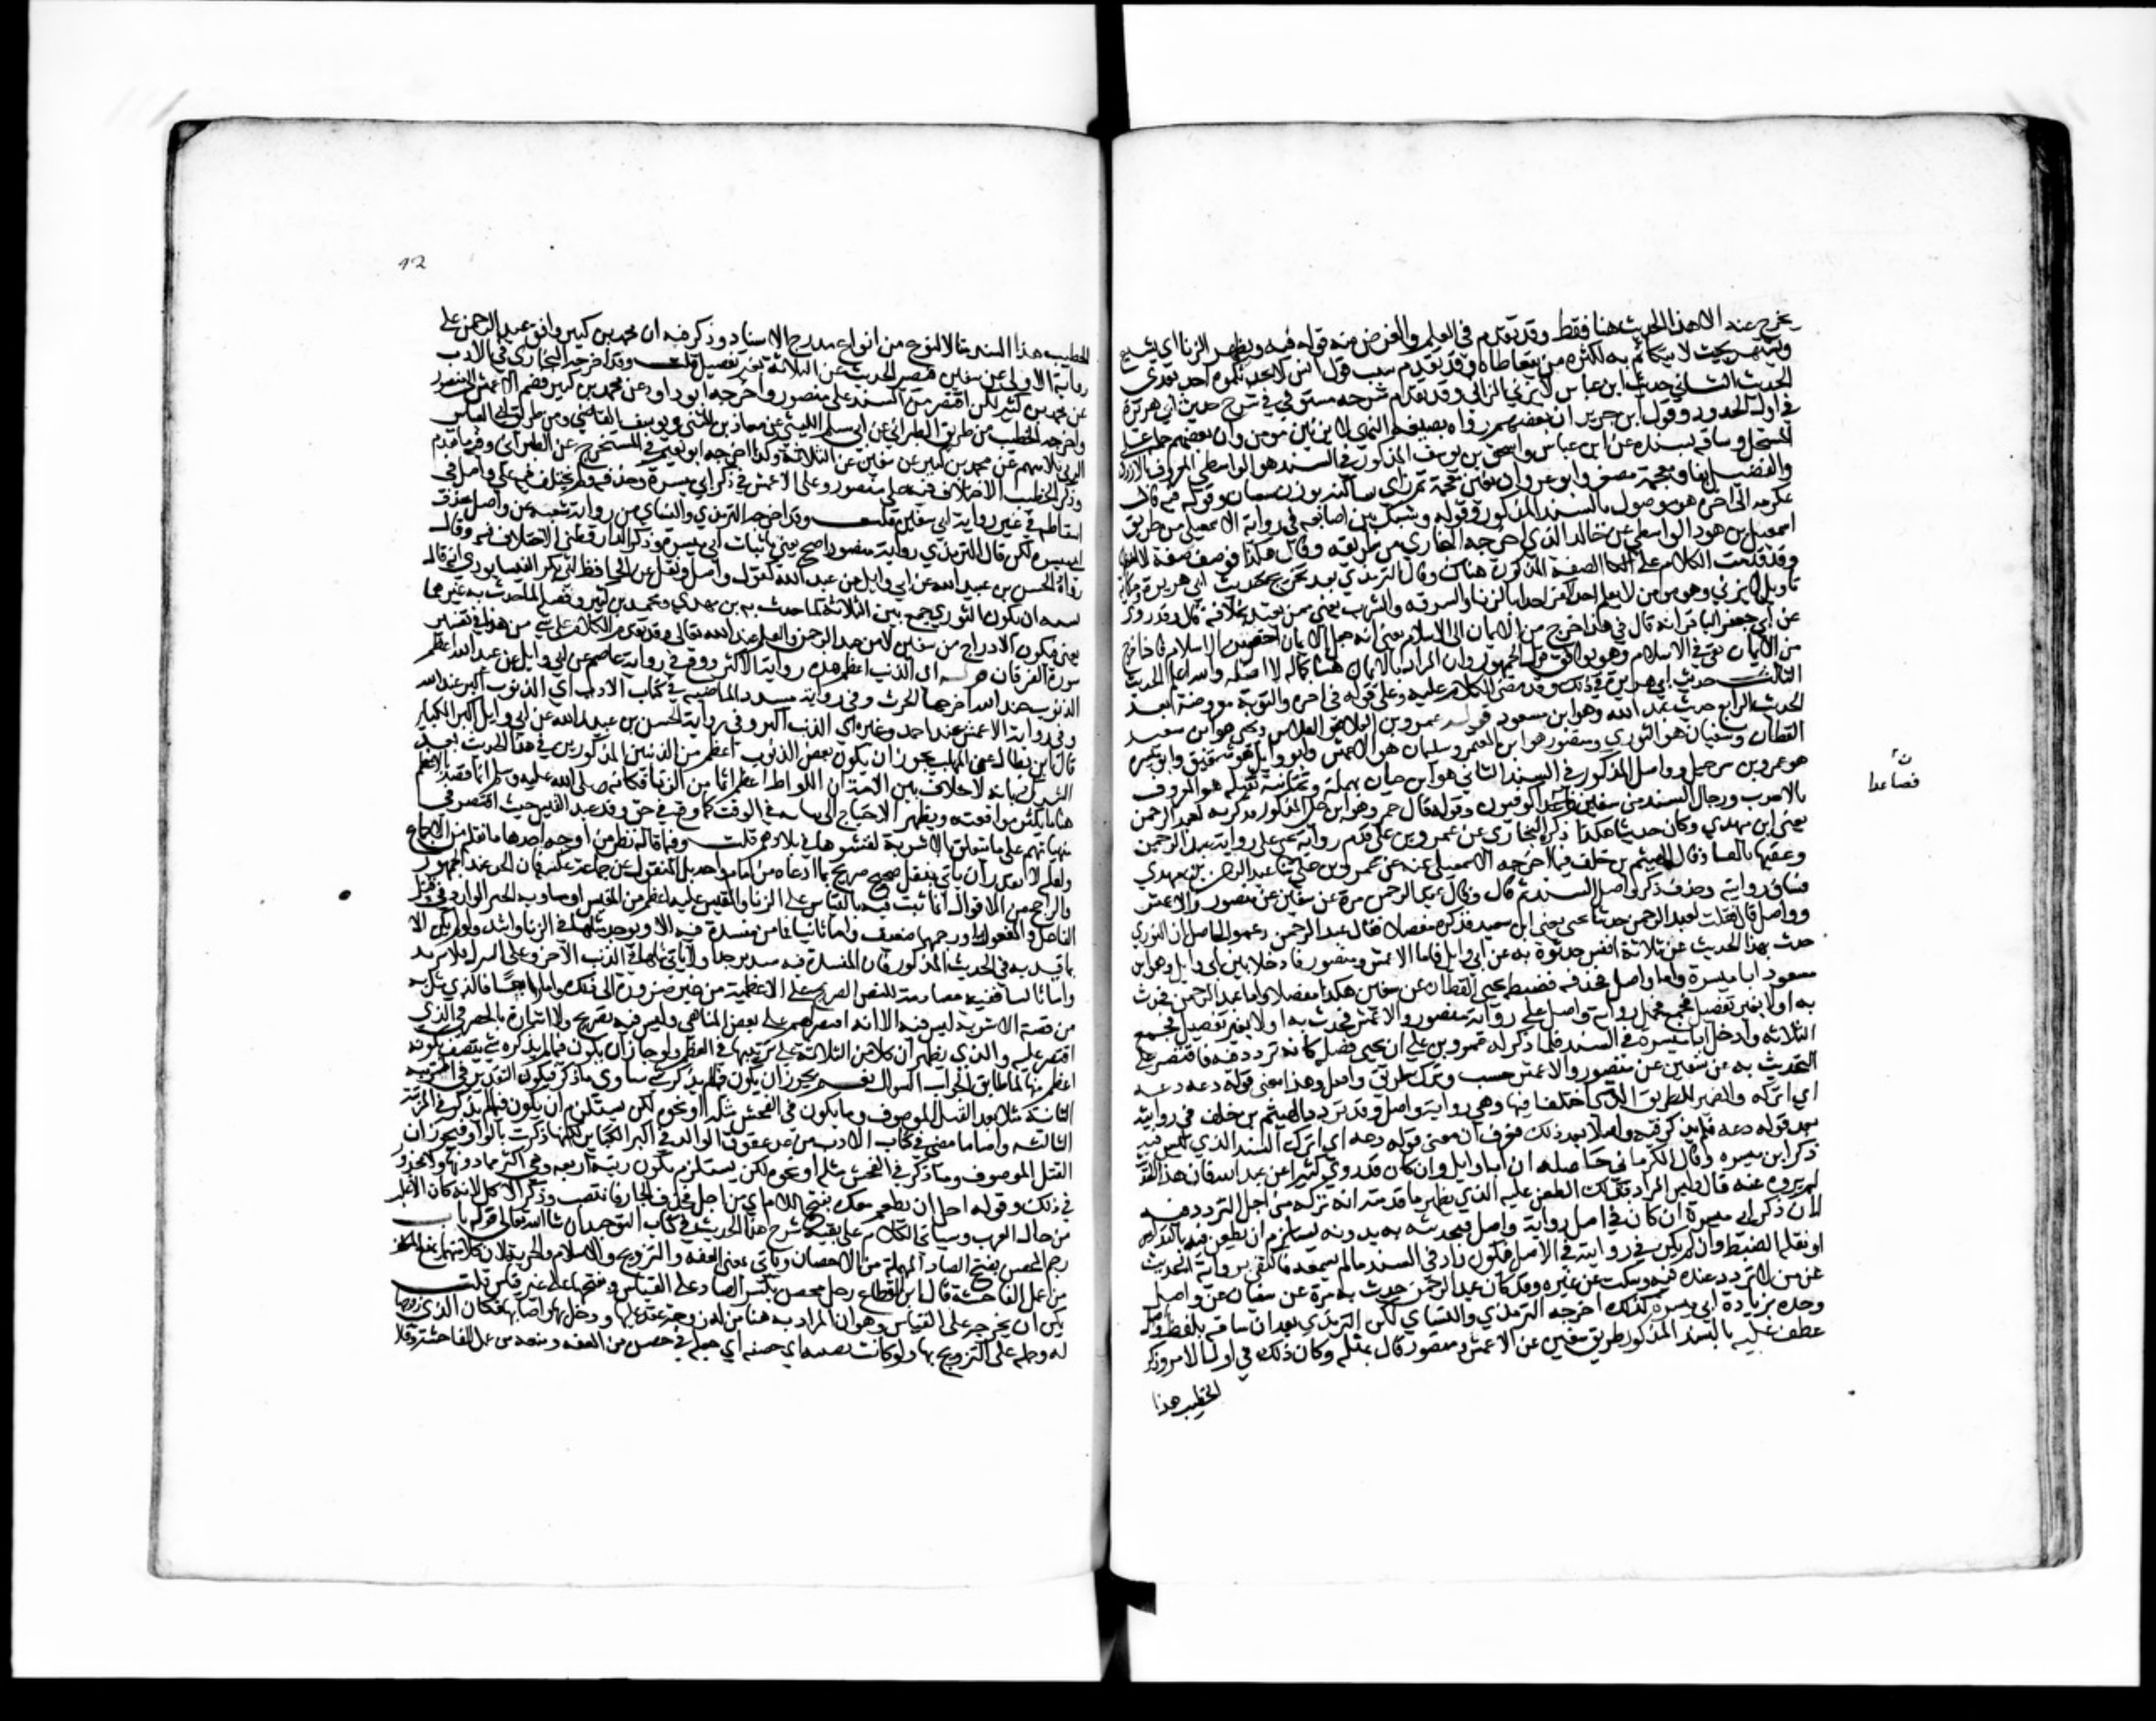 يخرج عنه الا هذا الحديث هنا فقط وقد تقدم في العلم والغرض منه قوله فيه ويظهر الزنا اي يشيع
ويشتهر بحيث لا يتكاتم به لكثرة من يتعاطاه وقد تقدم سبب قول انس لا يحدثكموه احد بعدي
الحديث الثاني حديث ابن عباس لا يزني الزاني وقد تقدم شرحه مستوفى في شرح حديث ابي هريرة
في اول الحدود وقول ابن جرير ان بعضهم رواه بصيغة النهي لا يزنين مومن وان بعضهم حمله على
المستحل وساقه بسنده عن ابن عباس واسحق بن يوسف المذكور في السند هو الواسطي المعروف بالازرق
والفضيل بفاء ومعجمة مصغر وابوه غزوان بغين معجمة ثم زاي ساكنة بوزن شعبان وقوله فيه قال
عكرمة الى اخره هو موصول بالسند المذكور وقوله وشبك بين اصابعه في رواية الاسمعيلي من طريق
اسمعيل بن هود الواسطي عن خالد الذي اخرجه البخاري من طريقه وقال هكذا فوصف صفة لا احفظها
وقد قدمت الكلام على الصفة المذكورة هناك وقال الترمذي بعد تخريج حديث ابي هريرة وحكاية
تاويل لا يزني وهو مومن لا نعلم احدا كفر احدا بالزنا والسرقة والشرب يعني ممن يعتد بخلافه قال وقد روي
عن ابي جعفر الباقر انه قال في هذا خرج من الايمان الى الاسلام يعني انه جعل الايمان اخص من الاسلام فاذا خرج
من الايمان بقي في الاسلام وهو يوافق قول الجمهور وان المراد بالايمان هنا كماله لا اصله والله اعلم الحديث
الثالث حديث ابي هريرة في ذلك وقد مضى الكلام عليه وعلى قوله في اخره والتوبة معروضة بعد
الحديث الرابع حديث عبد الله وهو ابن مسعود قوله عمرو بن علي هو الفلاس ويحيى هو ابن سعيد
القطان وسفيان هو الثوري ومنصور هو ابن المعتمر وسليمان هو الاعمش وابو وايل هو شقيق وابو ميسرة
هو عمرو بن شرحبيل وواصل المذكور في السند الثاني هو ابن حيان بمهملة وتحتانية ثقيلة هو المعروف
بالاحدب ورجال السند من سفين فصاعدا كوفيون وقوله قال عمرو هو ابن علي المذكور فذكرته لعبد الرحمن
يعني ابن مهدي وكان حدثنا هكذا ذكره البخاري عن عمرو بن علي قدم رواية يحيى على رواية عبد الرحمن
وعقبها بالفاء وقال الهيثم بن خلف فيما اخرجه الاسمعيلي عنه عن عمرو بن علي حدثنا عبد الرحمن بن مهدي
فساق روايته وحذف ذكر واصل من السند ثم قال وقال عبد الرحمن مرة عن سفين عن منصور والاعمش
وواصل قال فقلت لعبد الرحمن حدثنا يحيى بن سعيد فذكره مفصلا فقال عبد الرحمن دعه والحاصل ان الثوري
حدث بهذا الحديث عن ثلاثة انفس حدثوه به عن ابي وايل فاما الاعمش ومنصور فادخلا بين ابي وايل وهو ابن
مسعود ابا ميسرة واما واصل فحذفه فضبطه يحيى القطان عن سفين هكذا مفصلا واما عبد الرحمن فحدث
به اولا بغير تفصيل فحمل رواية واصل على رواية منصور والاعمش فحدث به اولا بغير تفصيل فجمع
الثلاثة وادخل ابا ميسرة في السند فلما ذكر له عمرو بن علي ان يحيى فصله كانه تردد فيه فاقتصر على
التحديث به عن سفين عن منصور والاعمش حسب وترك طريق واصل وهذا معنى قوله دعه دعه
اي اتركه والضمير للطريق التي اختلفا فيها وهي رواية واصل وقد زاد الهيثم بن خلف في روايته
بعد قوله دعه فلم يذكر فيه واصلا بعد ذلك فعرف ان معنى قوله دعه اي اترك السند الذي ليس فيه
ذكر ابي ميسرة وقال الكرماني حاصله ان ابا وايل وان كان قد روى كثيرا عن عبد الله فان هذا القدر
لم يروه عنه قال وليس المراد بذلك الطعن عليه الذي يظهر ما قدمته انه تركه من اجل التردد فيه
لان ذكر ابي ميسرة ان كان في اصل رواية واصل فتحديثه به بدونه يستلزم انه طعن فيه بالتدليس
او بقلة الضبط وان لم يكن في روايته في الاصل فيكون زاد في السند ما لم يسمعه فاكتفى برواية الحديث
عن من لا تردد عنده فيه وسكت عن غيره وقد كان عبد الرحمن حدث به مرة عن سفيان عن واصل
وحده بزيادة ابي ميسرة كذلك اخرجه الترمذي والنساي لكن الترمذي بعد ان ساقه بلفظ واصل
عطف عليه بالسند المذكور طريق سفين عن الاعمش ومنصور قال بمثله وكان ذلك في اول الامر وذكر
الخطيب هذا
ن
فصاعدا
12
الخطيب هذا السند مثالا لنوع من انواع مدرج الاسناد وذكر فيه ان محمد بن كثير وافق عبد الرحمن على
رواية الاولى عن سفين فيصير الحديث عن الثلاثة بغير تفصيل قلت وقد اخرجه البخاري في الادب
عن محمد بن كثير لكن اقتصر من السند على منصور واخرجه ابو داود عن محمد بن كثير فضم الاعمش الى منصور
واخرجه الخطيب من طريق الطبراني عن ابي مسلم الليثي عن معاذ بن المثنى ويوسف القاضي ومن طريق ابي العباس
البرتي ثلاثتهم عن محمد بن كثير عن سفين عن الثلاثة وكذا اخرجه ابو نعيم في المستخرج عن الطبراني وفيه ما تقدم
وذكر الخطيب الاختلاف فيه على منصور وعلى الاعمش في ذكر ابي ميسرة وحذفه ولم يختلف فيه على واصل في
اسقاطه في غير رواية سفين قلت وقد اخرجه الترمذي والنساي من رواية شعبة عن واصل بحذف
ابي ميسرة لكن قال الترمذي رواية منصور اصح يعني باثبات ابي ميسرة وذكر الدارقطني الاختلاف فيه وقال
رواه الحسن بن عبيد الله عن ابي وايل عن عبد الله كقول واصل ونقل عن الحافظ ابي بكر النيسابوري انه قال
يشبه ان يكون الثوري جمع بين الثلاثة لما حدث به بن مهدي ومحمد بن كثير وفصله لما حدث به غيرهما
يعني فيكون الادراج من سفين لا من عبد الرحمن والعلم عند الله تعالى وقد تقدم الكلام على شي من هذا في تفسير
سورة الفرقان قوله اي الذنب اعظم هذه رواية الاكثر ووقع في رواية عاصم عن ابي وايل عن عبد الله اعظم
الذنوب عند الله اخرجها الحرث وفي رواية مسدد الماضية في كتاب الادب اي الذنوب اكبر عند الله
وفي رواية الاعمش عند احمد وغيره اي الذنب اكبر وفي رواية الحسن بن عبيد الله عن ابي وايل اكبر الكباير
قال ابن بطال عن المهلب يجوز ان يكون بعض الذنوب اعظم من الذنبين المذكورين في هذا الحديث بعد
الشرك لانه لا خلاف بين الامة ان اللواط اعظم اثما من الزنا فكانه صلى الله عليه وسلم انما قصد بالاعظم
هنا ما يكثر مواقعته ويظهر الاحتياج الى بيانه في الوقت كما وقع في حق وفد عبد القيس حيث اقتصر في
منهياتهم على ما يتعلق بالاشربة لفشوها في بلادهم قلت وفيما قاله نظر من اوجه احدها ما نقله من الاجماع
ولعله لا يقدر ان ياتي بنقل صحيح صريح بما ادعاه عن امام واحد بل المنقول عن جماعة عكسه فان الحد عند الجمهور
والراجح من الاقوال انما ثبت فيه بالقياس على الزنا والمقيس عليه اعظم من المقيس او مساويه والخبر الوارد في قتل
الفاعل والمفعول به او رجمهما ضعيف واما ثانيا فما من مفسدة فيه الا ويوجد مثلها في الزنا واشد ولو لم يكن الا
ما قيد به في الحديث المذكور فان المفسدة فيه شديدة جدا ولا ياتي مثلها في الذنب الاخر وعلى التنزل فلا يزيد
واما ثالثا ففيه مصادمة للنص الصريح على الاعظمية من غير ضرورة الى ذلك واما رابعا فالذي مثل به
من قصة الاشربة ليس فيه الا انه اقتصر لهم على بعض المناهي وليس فيه تصريح ولا اشارة بالحصر في الذي
اقتصر عليه والذي يظهر ان كلا من الثلاثة على ترتيبها في العظم ولو جاز ان يكون فيما لم يذكره شي يتصف بكونه
اعظم منها لما طابق الجواب السوال نعم يجوز ان يكون فيما لم يذكر شي يساوي ما ذكر فيكون التقدير في المرتبة
الثانية مثلا بعد القتل الموصوف وما يكون في الفحش مثله او نحوه لكن يستلزم ان يكون فيما لم يذكر في المرتبة
الثالثة واما ما مضى في كتاب الادب من عد عقوق الوالد في اكبر الكباير لكنها ذكرت بالواو فيجوز ان
القتل الموصوف وما ذكر في الفحش مثله او نحوه لكن يستلزم ان يكون رتبة رابعة وهي اكبر مما دونها ولا محذور
في ذلك وقوله اجل ان يطعم معك بفتح اللام اي من اجل فحذف الجار فانتصب وذكر الاكل لانه كان الاغلب
من حال العرب وسياتي الكلام على بقية شرح هذا الحديث في كتاب التوحيد ان شا الله تعالى قوله باب
رجم المحصن بفتح الصاد المهملة من الاحصان وياتي بمعنى العفة والتزويج والاسلام والحرية لان كلا منها يمنع المكلف
من عمل الفاحشة قال ابن القطاع رجل محصن بكسر الصاد على القياس وبفتحها على غير قياس قلت
يمكن ان يخرج على القياس وهو ان المراد به هنا من له زوجة عقد عليها ودخل بها واصابها فكان الذي زوجها
له وحمله على التزويج بها ولو كانت نفسه اي حصنه اي جعله في حصن من العفة ومنعه من عمل الفاحشة وقال